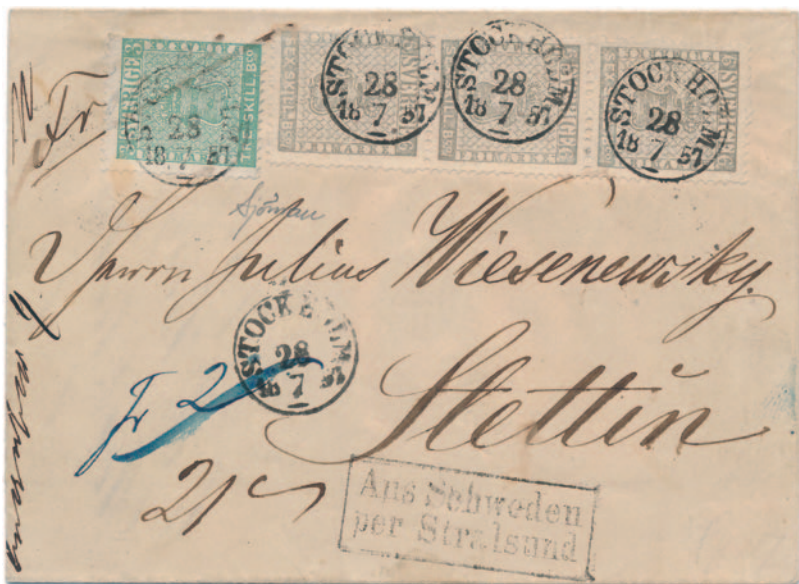 Fr
SVERIGE 3
TRE SKILL. Bco
FRIMARKE
FRIMARKE
FRIMARKE
SVERIGE
STOCKHOLM
28
18 7 57
STOCKHOLM
28
18 7 57
STOCKHOLM
28
18 7 57
STOCKHOLM
28
18 7 57
Sjöman
Herrn Julius Wiesenewsky
STOCKHOLM
28
18 7 57
Stettin
Fr 2
21
Aus Schweden
per Stralsund